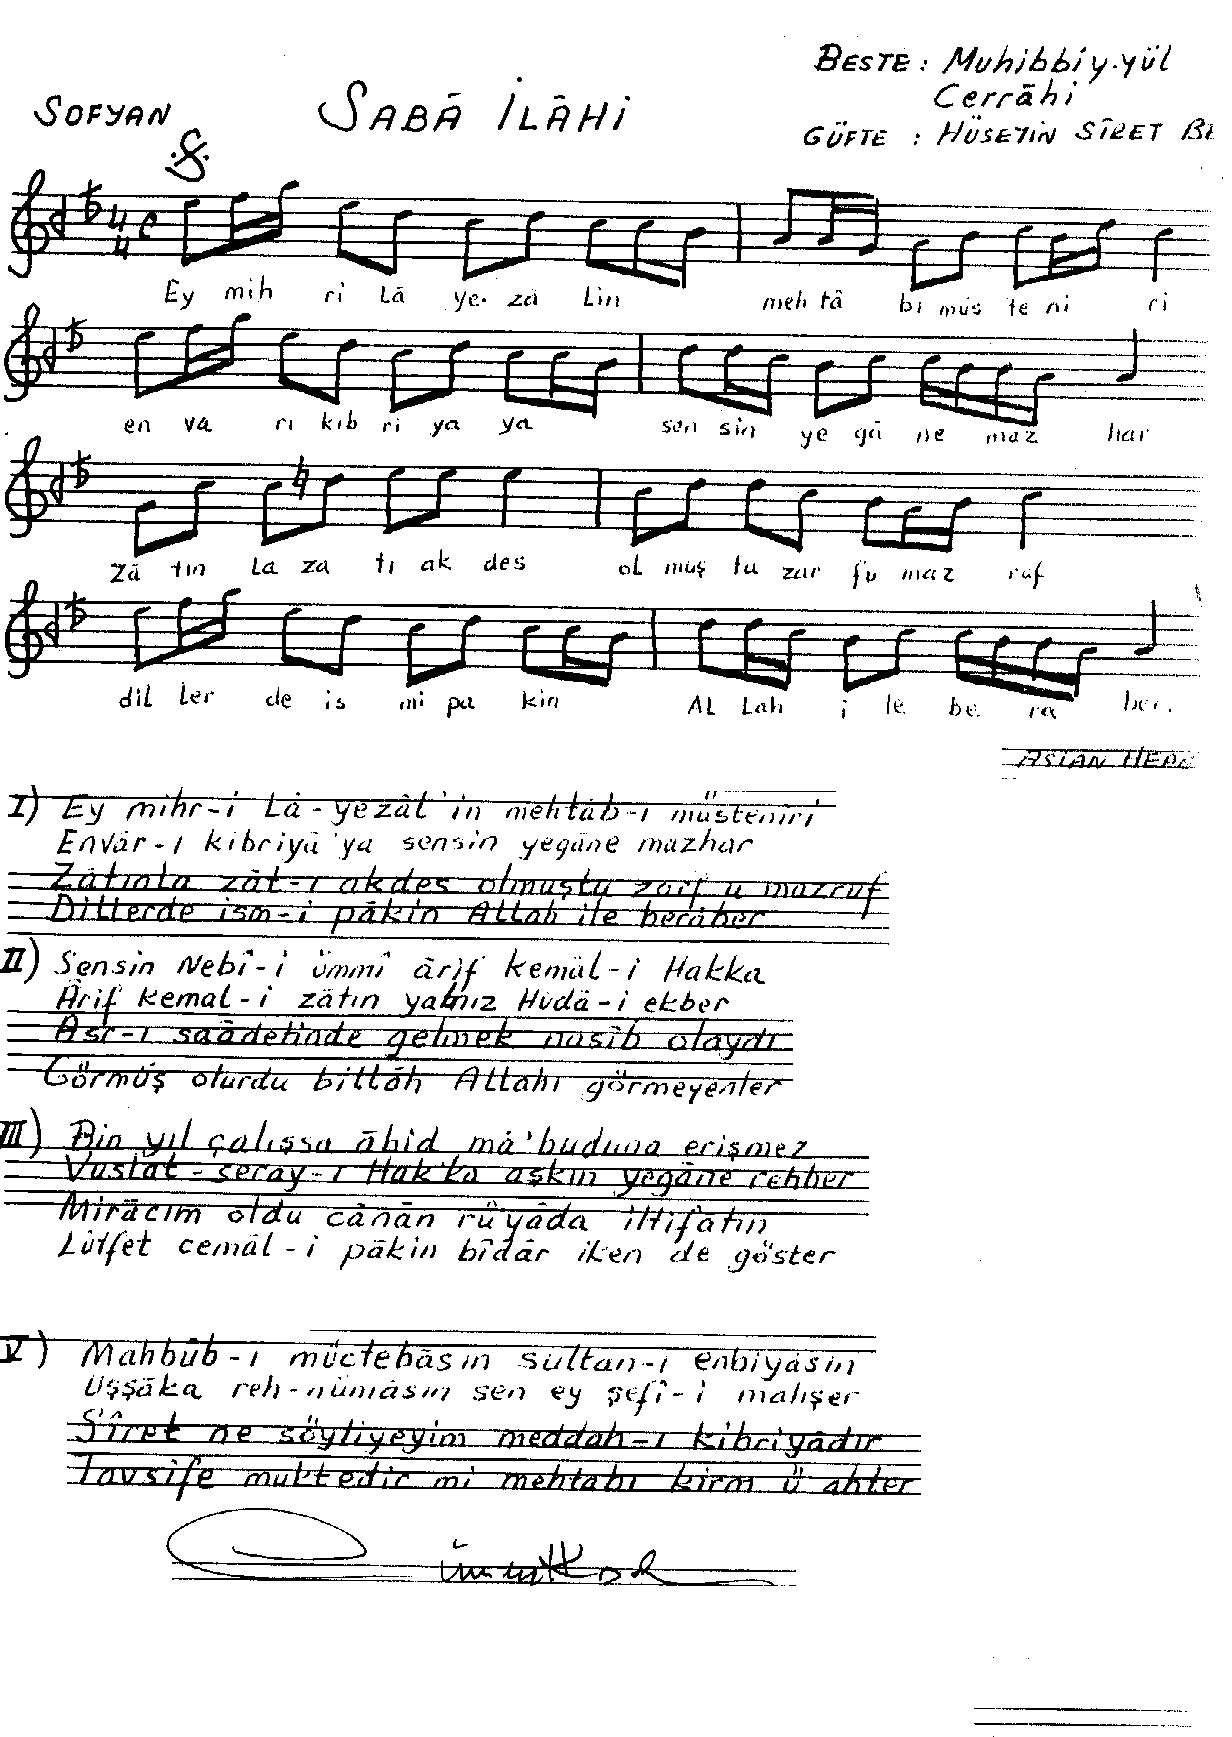 BESTE : Muhibbiy-yül
SOFYAN SABÂ İLÂHİ Cerrâhi
GÜFTE : HÜSEYİN SÎRET
4 4
Ey mih ri Lâ ye. zâ Lin meh tâ bi müs te ni ri
en va ri kib ri ya ya sen sin ye gâ ne maz har
Zâ tın La za tı ak des ol muş tu zar fu maz ruf
dil ler de is mi pa kin AL Lah i le be ra ber.
ASLAN HEPŞ
I) Ey mihr-i Lâ-yezâl'in mehtâb-ı müstenîri
Envâr-ı kibriyâ'ya sensin yegâne mazhar
Zâtınla zât-ı akdes olmuştu zarf u mazruf
Dillerde ism-i pâkin Allah ile berâber
II) Sensin Nebî-i ümmî ârif kemâl-i Hakka
Ârif kemal-i zâtın yalnız Hüdâ-i ekber
Asr-ı saâdetinde gelmek nasîb olaydı
Görmüş olurdu billâh Allahı görmeyenler
III) Bin yıl çalışsa âbid mâ'buduna erişmez
Vuslat-seray-ı Hak'ka aşkın yegâne rehber
Mirâcım oldu cânân rü'yâda iltifatın
Lütfet cemâl-i pâkin bîdâr iken de göster
V) Mahbûb-ı müctebâsın sultan-i enbiyâsın
Uşşâka reh-nümâsın sen ey şefî-i mahşer
Sîret ne söyliyeyim meddah-ı kibriyâdır
Tavsîfe muktedir mi mehtabı kirm ü ahter